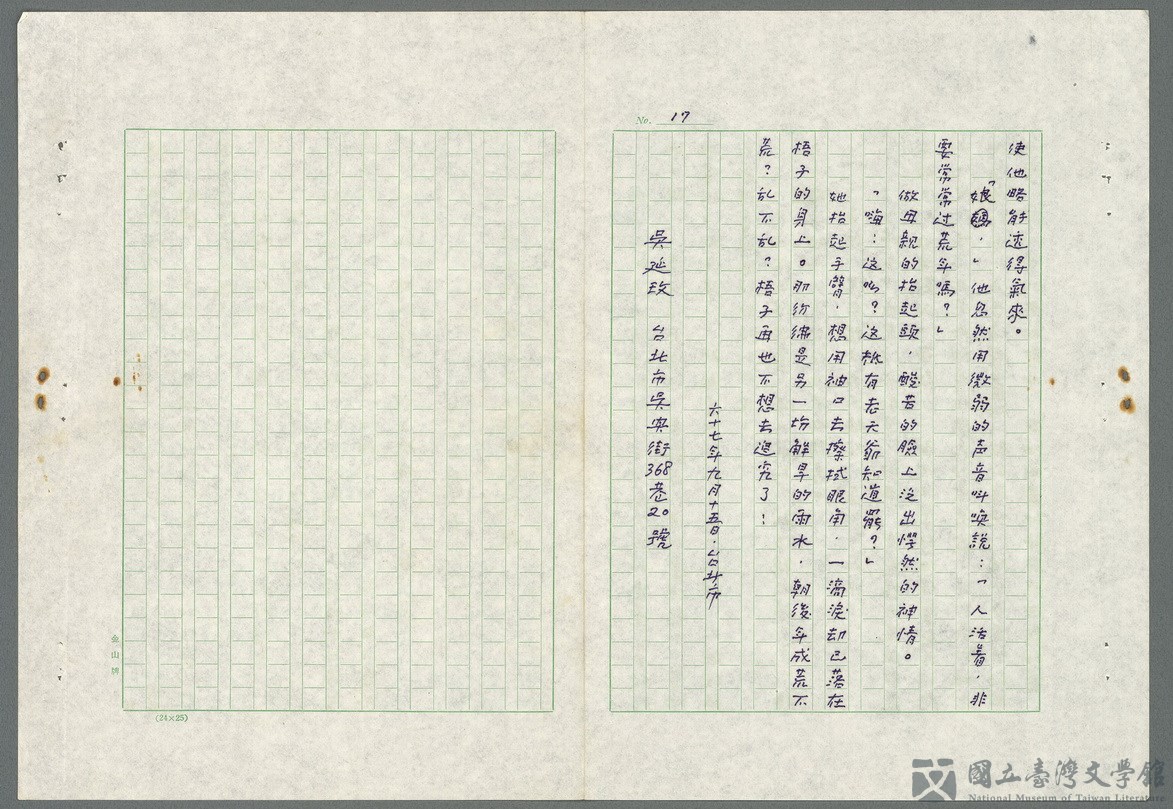 No. 17
使他略能透得氣來。
「娘，」他忽然用微弱的声音叫喚說：「人活着，非
要常常过荒年嗎？」
做母親的抬起頭，酸苦的臉上泛出愕然的神情。
「嗨！这么？这柢有老天爺知道罷？」
她抬起手臂，想用袖口去擦拭眼角，一滴淚却已落在
梧子的身上。那彷彿是另一场解旱的雨水，朝後年成荒不
荒？乱不乱？梧子再也不想去追究了！
六十七年九月十五日．台北市
吳延玫 台北市吳興街368巷20號
金山牌
(24×25)
國立臺灣文學館
National Museum of Taiwan Literature